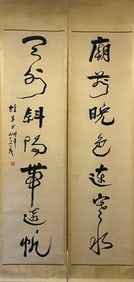 廟前晚色連寒水
天外斜陽帶遠帆